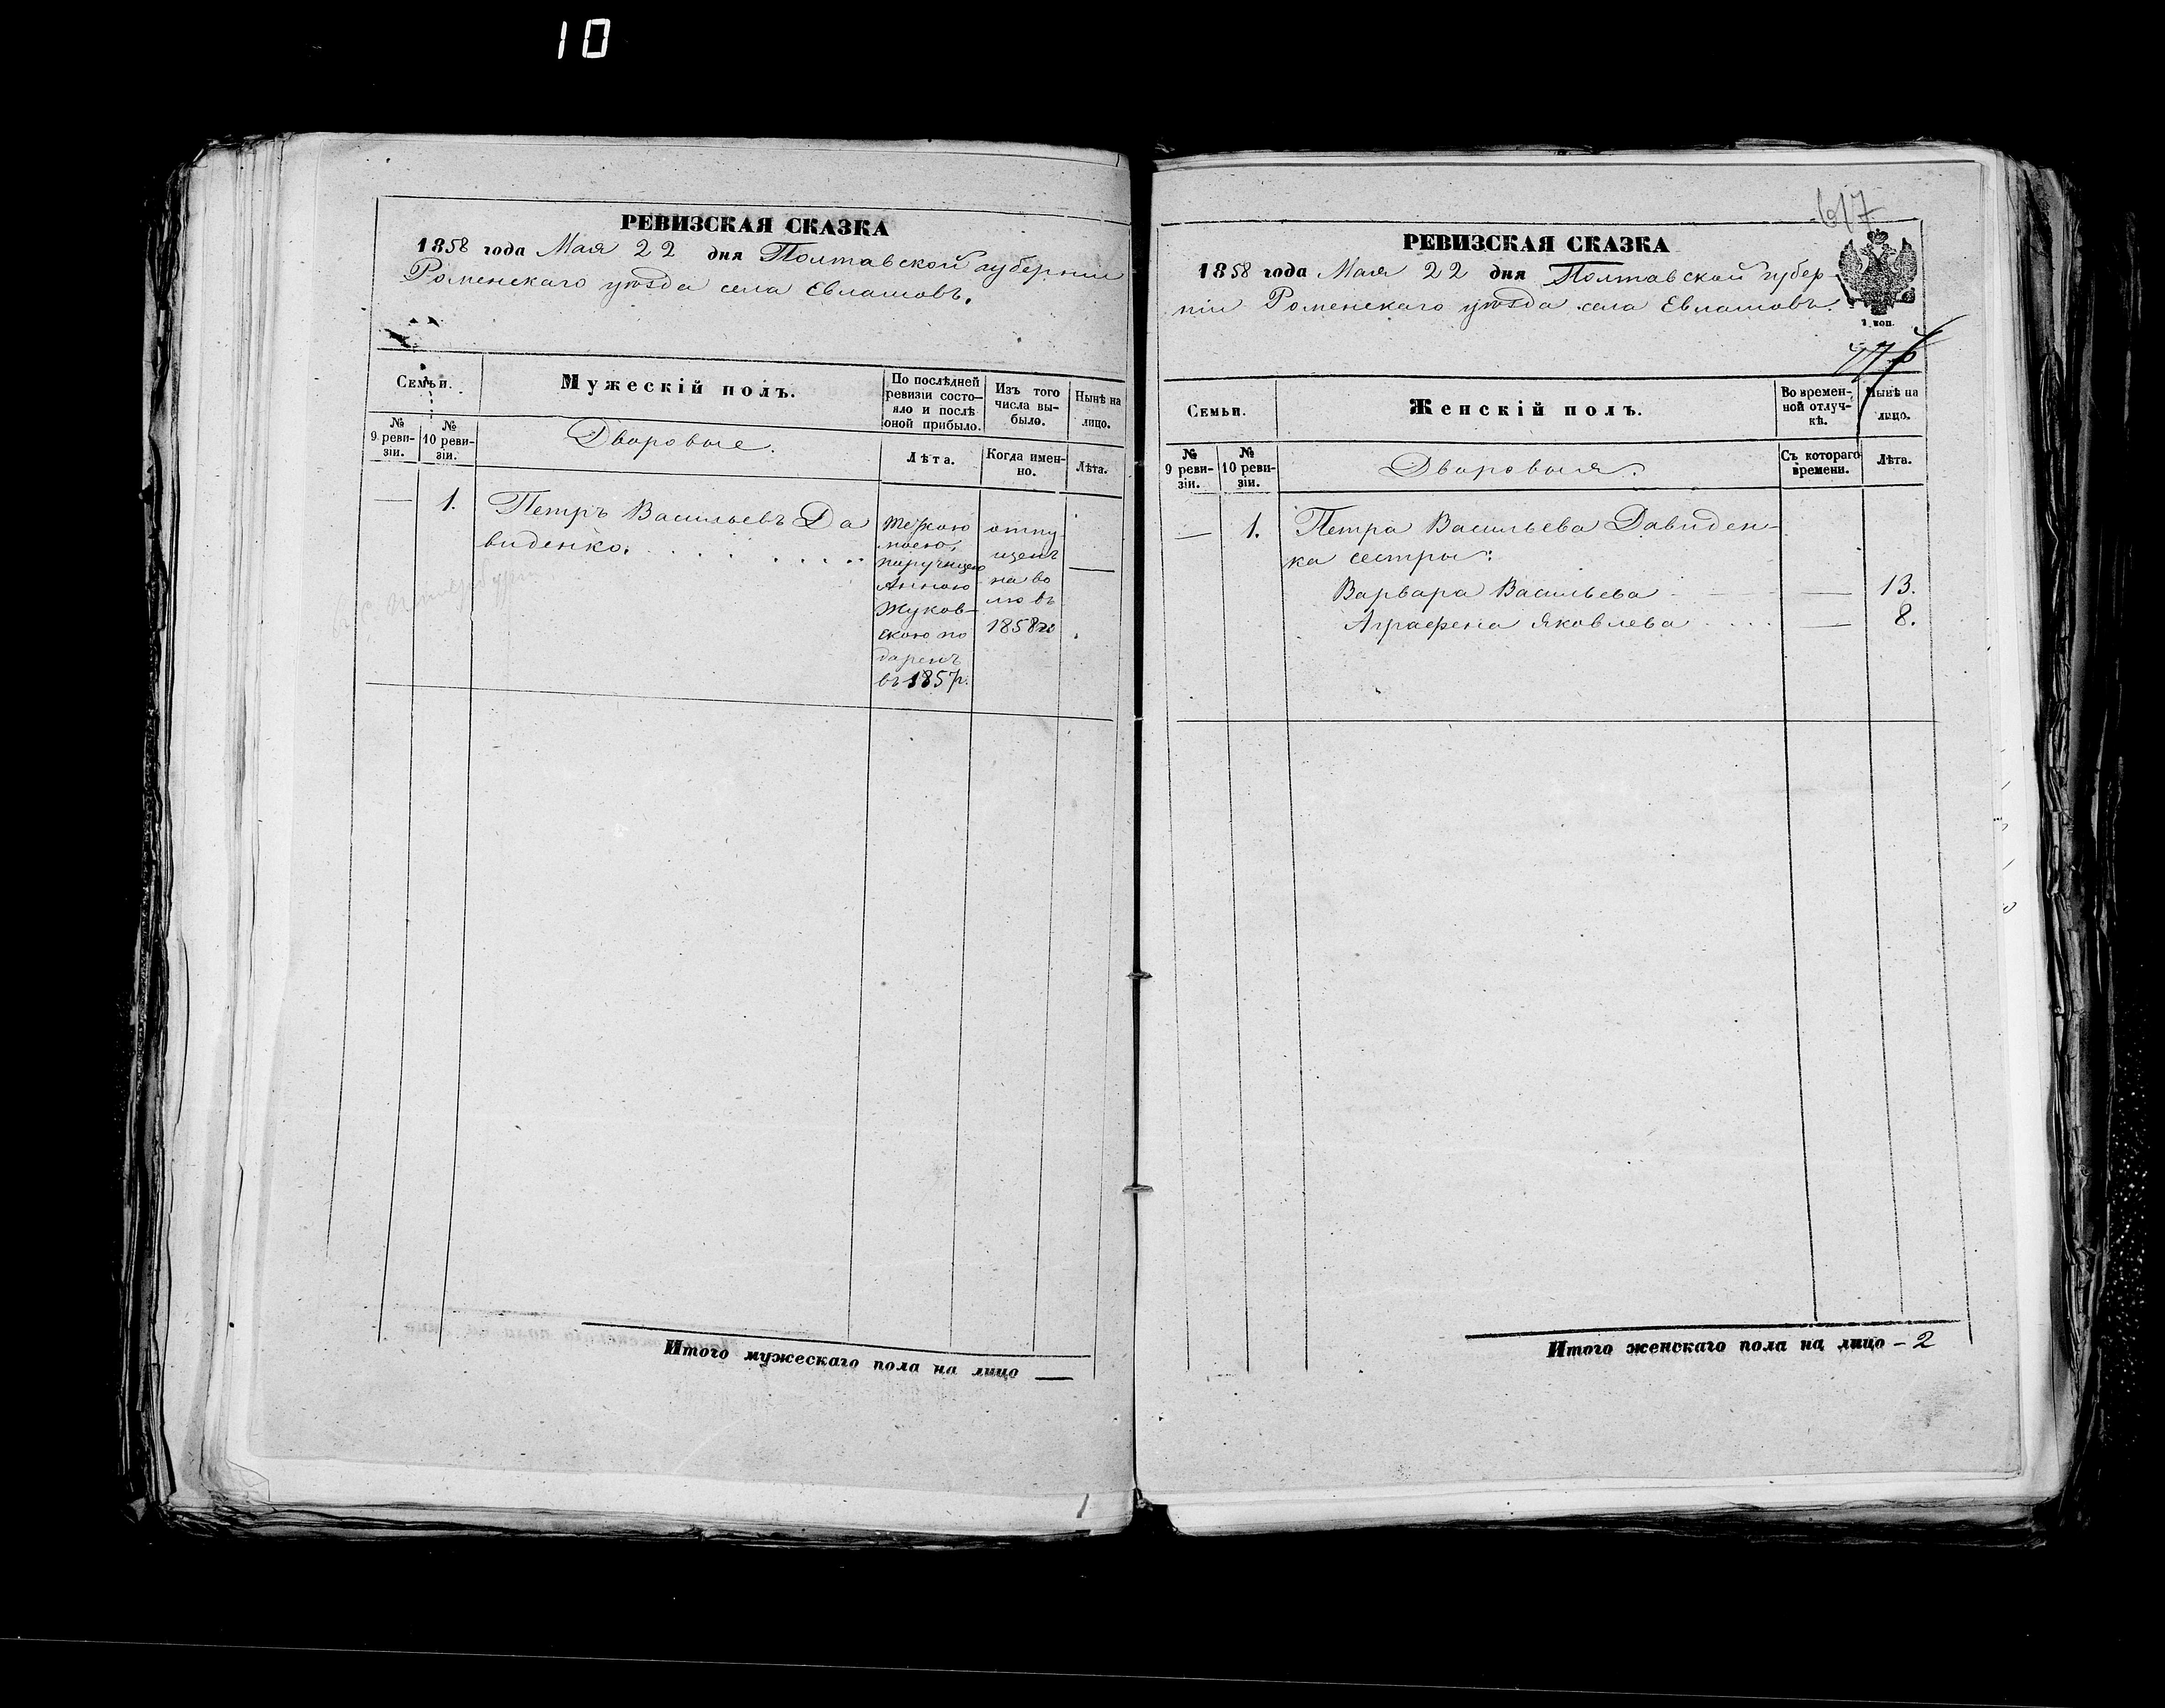 10
РЕВИЗСКАЯ СКАЗКА
1858 года Мая 22 дня Полтавской губерніи
Роменскаго уѣзда села Евлашовъ.
Семьи.
Мужескій полъ.
По послѣдней
ревизіи состо-
яло и послѣ
оной прибыло.
Изъ того
числа вы-
было.
Нынѣ на
лицо.
№
9 реви-
зіи.
№
10 реви-
зіи.
Дворовые.
Лѣта.
Когда имен-
но.
Лѣта.
— 1. Петръ Васильевъ Да
виденко.
поручицею
Анною
Жуков-
скою по
даренъ
въ 1857 г.
отпу
щенъ
на во
лю въ
1858 го
—
Итого мужескаго пола на лицо —
617
РЕВИЗСКАЯ СКАЗКА
1858 года Мая 22 дня Полтавской губер-
ніи Роменскаго уѣзда села Евлашовъ.
Семьи.
Женскій полъ.
Во времен-
ной отлуч-
кѣ.
Нынѣ на
лицо.
№
9 реви-
зіи.
№
10 реви-
зіи.
Дворовыя.
Съ котораго
времени.
Лѣта.
— 1. Петра Васильева Давиден-
ка сестры:
Варвара Васильева — 13.
Аграфена Яковлева — 8.
Итого женскаго пола на лицо – 2